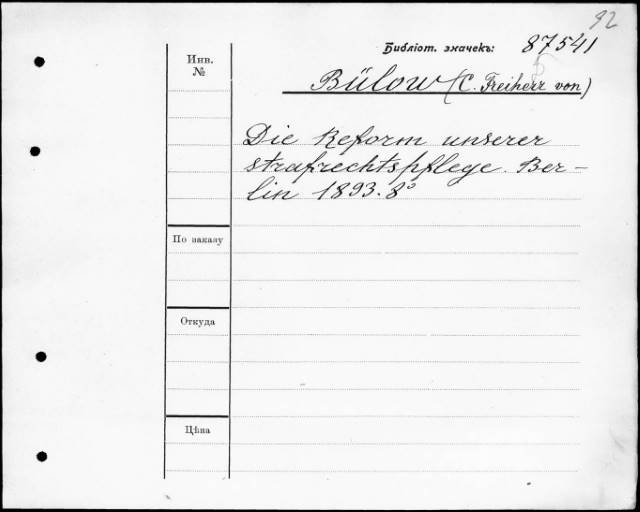 92
Библіот. значекъ: 87541
Инв.
№
Bülow (C. Freiherr von)
Die Reform unserer
strafrechtspflege. Ber-
lin 1893. 8°
По заказу
Откуда
Цѣна